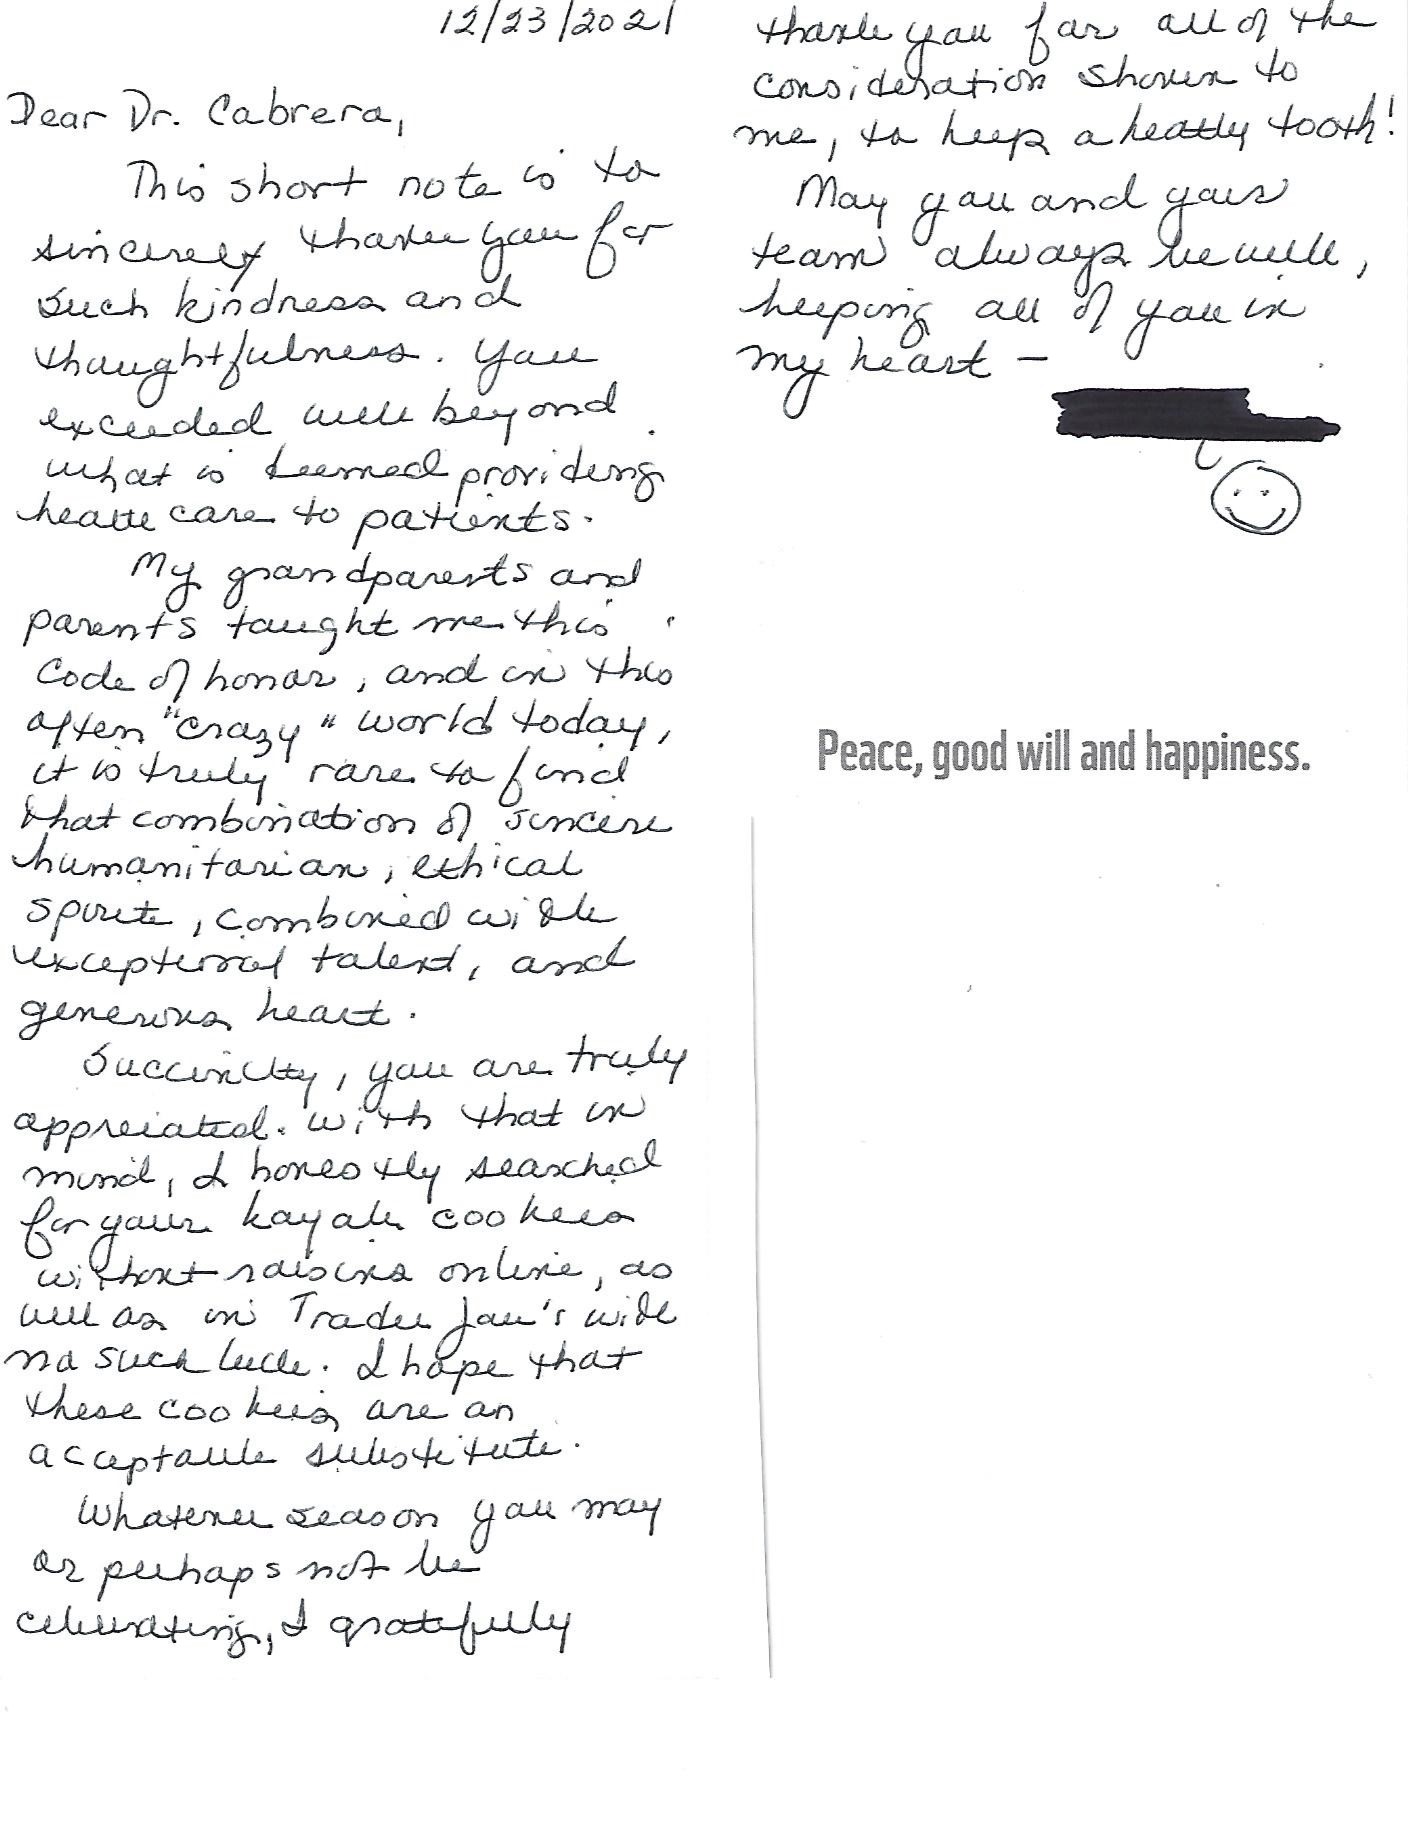 12/23/2021
Dear Dr. Cabrera,
This short note is to
sincerely thank you for
such kindness and
thoughtfulness. You
exceeded well beyond
what is deemed providing
health care to patients.
My grandparents and
parents taught me this
code of honor, and in this
often "crazy" world today,
it is truly rare to find
that combination of sincere
humanitarian, ethical
spirit, combined with
exceptional talent, and
generous heart.
Succinctly, you are truly
appreciated. With that in
mind, I honestly searched
for your kayak cookies
without raisins online, as
well as in Trader Joe's with
no such luck. I hope that
these cookies are an
acceptable substitute.
Whatever season you may
or perhaps not be
celebrating, I gratefully
thank you for all of the
consideration shown to
me, to keep a healthy tooth!
May you and your
team always be well,
keeping all of you in
my heart —
Peace, good will and happiness.